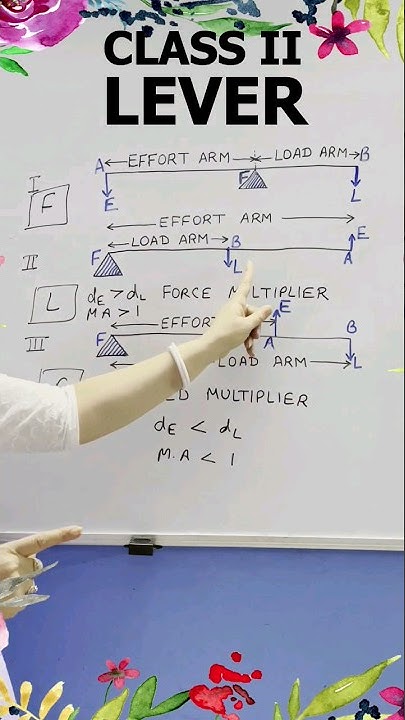 CLASS II
LEVER
A EFFORT ARM LOAD ARM B
I F
F E L
EFFORT ARM
LOAD ARM B E
II F L A
L dE > dL FORCE MULTIPLIER
M A > 1
EFFORT E
III F A B
LOAD ARM L
MULTIPLIER
dE < dL
M.A < 1